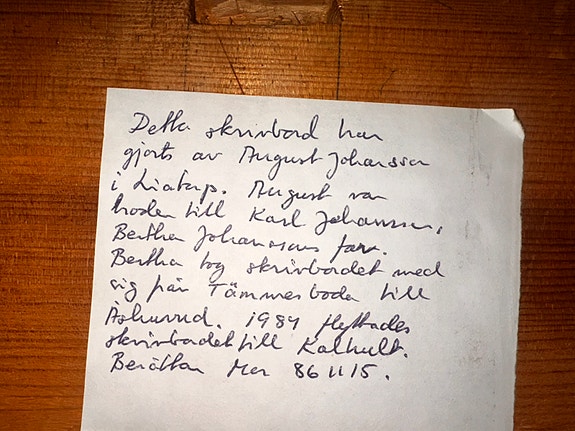 Detta skrivbord har
gjorts av August Johansson
i Liatorp. August var
broder till Karl Johansson,
Bertha Johanssons far.
Bertha tog skrivbordet med
sig från Tämmesboda till
1984 flyttades
skrivbordet till Kalhult.
Berättar Mor 861115.